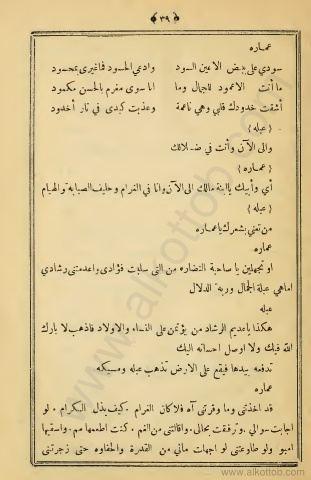 ﴿ ٣٩ ﴾
عماره
سودي على بيض الاعين السود وادعي الحسود فما غيري بمحسود
ما أنت الا عمود للجمال وما انا سوى مغرم بالحسن مكمود
أشقت خدودك قلبي وهي ناعمة وعذبت كبدى في نار أخدود
﴿ عبله ﴾
والى الآن وأنت في ضلالك
﴿ عماره ﴾
أي وأبيك يا ابنة مالك الى الآن وانا في الغرام وحليف الصبابة والهيام
﴿ عبله ﴾
من تعني بشعرك يا عماره
عماره
او تجهلين يا صاحبة النضاره من التى سلبت فؤادى واعدمتنى رشادي
اما هي عبلة الجمال وربة الدلال
عبله
هكذا يا عديم الرشاد من يؤتمن على النساء والاولاد فاذهب لا بارك
الله فيك ولا اوصل احسانه اليك
تدفعه بيدها فيقع على الارض تذهب عبله ومسيكه
عماره
قد اخذتنى وما وقرتنى آه فلا كان الغرام . كيف بذل الكرام . لو
اجابت سوالي . وترفقت بحالى . واقالتنى من الغم . كنت اطعمها سم . واسقيها
امبو ولو طاوعتنى لو اجهات مائي من القدرة والحفاوه حتى زجرتنى
www.alkottob.com